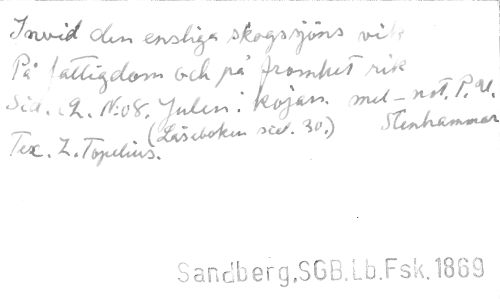 Invid den ensliga skogssjöns vik
På fattigdom och på fromhet rik
Sid. 2. N:o 8. Julen i kojan. mel-not. P.U.
(Läseboken sid. 30.) Stenhammar
Tex. Z. Topelius.
Sandberg,SGB.Lb.Fsk.1869